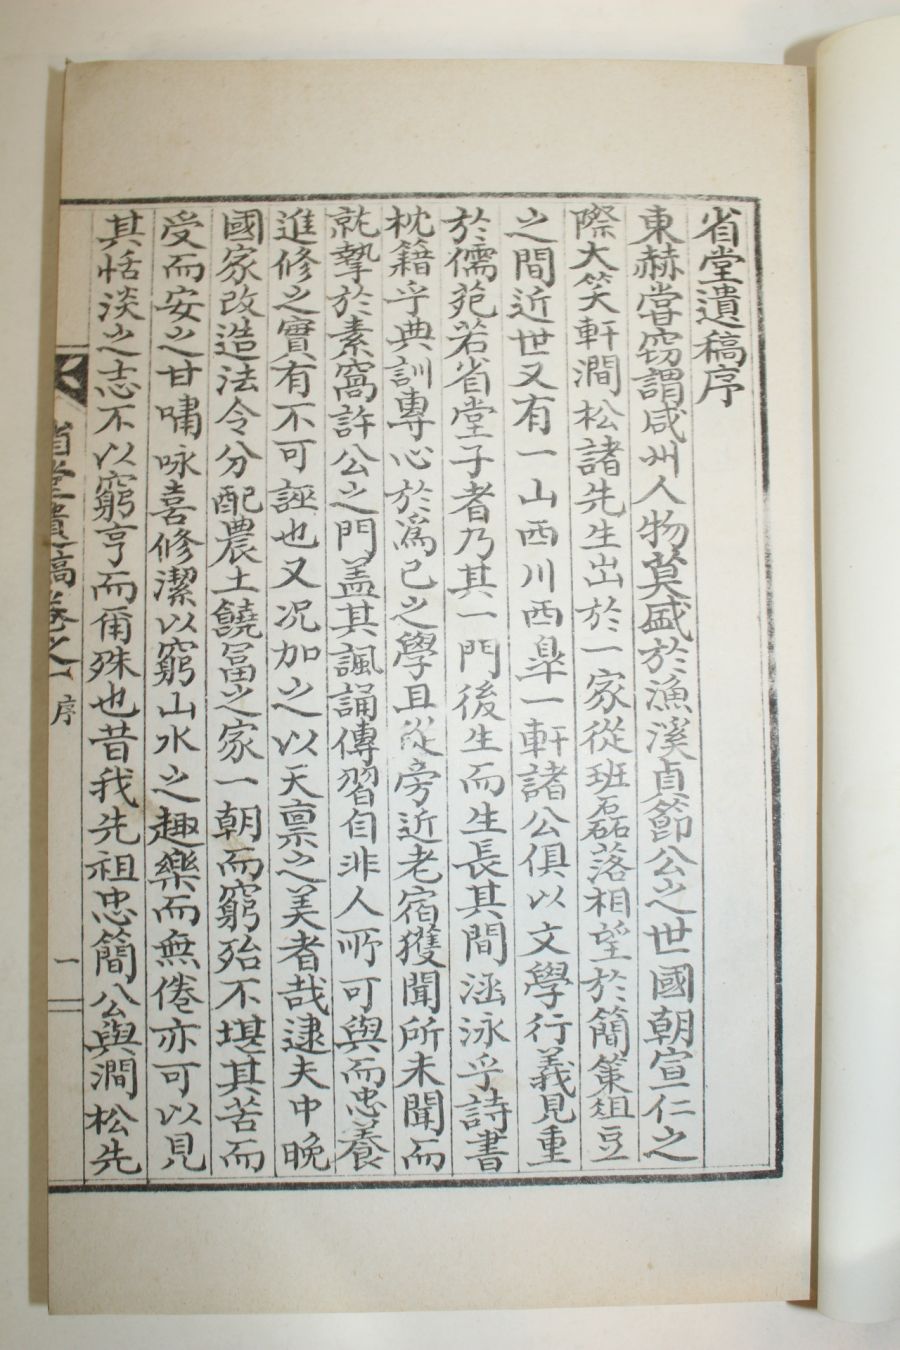 省堂遺稿序
東赫嘗窃謂咸州人物莫盛於漁溪貞節公之世國朝宣仁之
際大笑軒澗松諸先生出於一家從班磊落相望於簡策俎豆
之間近世又有一山西川西皐一軒諸公俱以文學行義見重
於儒苑若省堂子者乃其一門後生而生長其間涵泳乎詩書
枕籍乎典訓專心於爲己之學且從旁近老宿獲聞所未聞而
就摯於素窩許公之門盖其諷誦傳習自非人所可與而忠養
進修之實有不可誣也又况加之以天禀之美者哉逮夫中晩
國家改造法令分配農土饒冨之家一朝而窮殆不堪其苦而
受而安之甘嘯咏喜修潔以窮山水之趣樂而無倦亦可以見
其恬淡之志不以窮亨而爾殊也昔我先祖忠簡公與澗松先
省堂遺稿卷之一 序 一